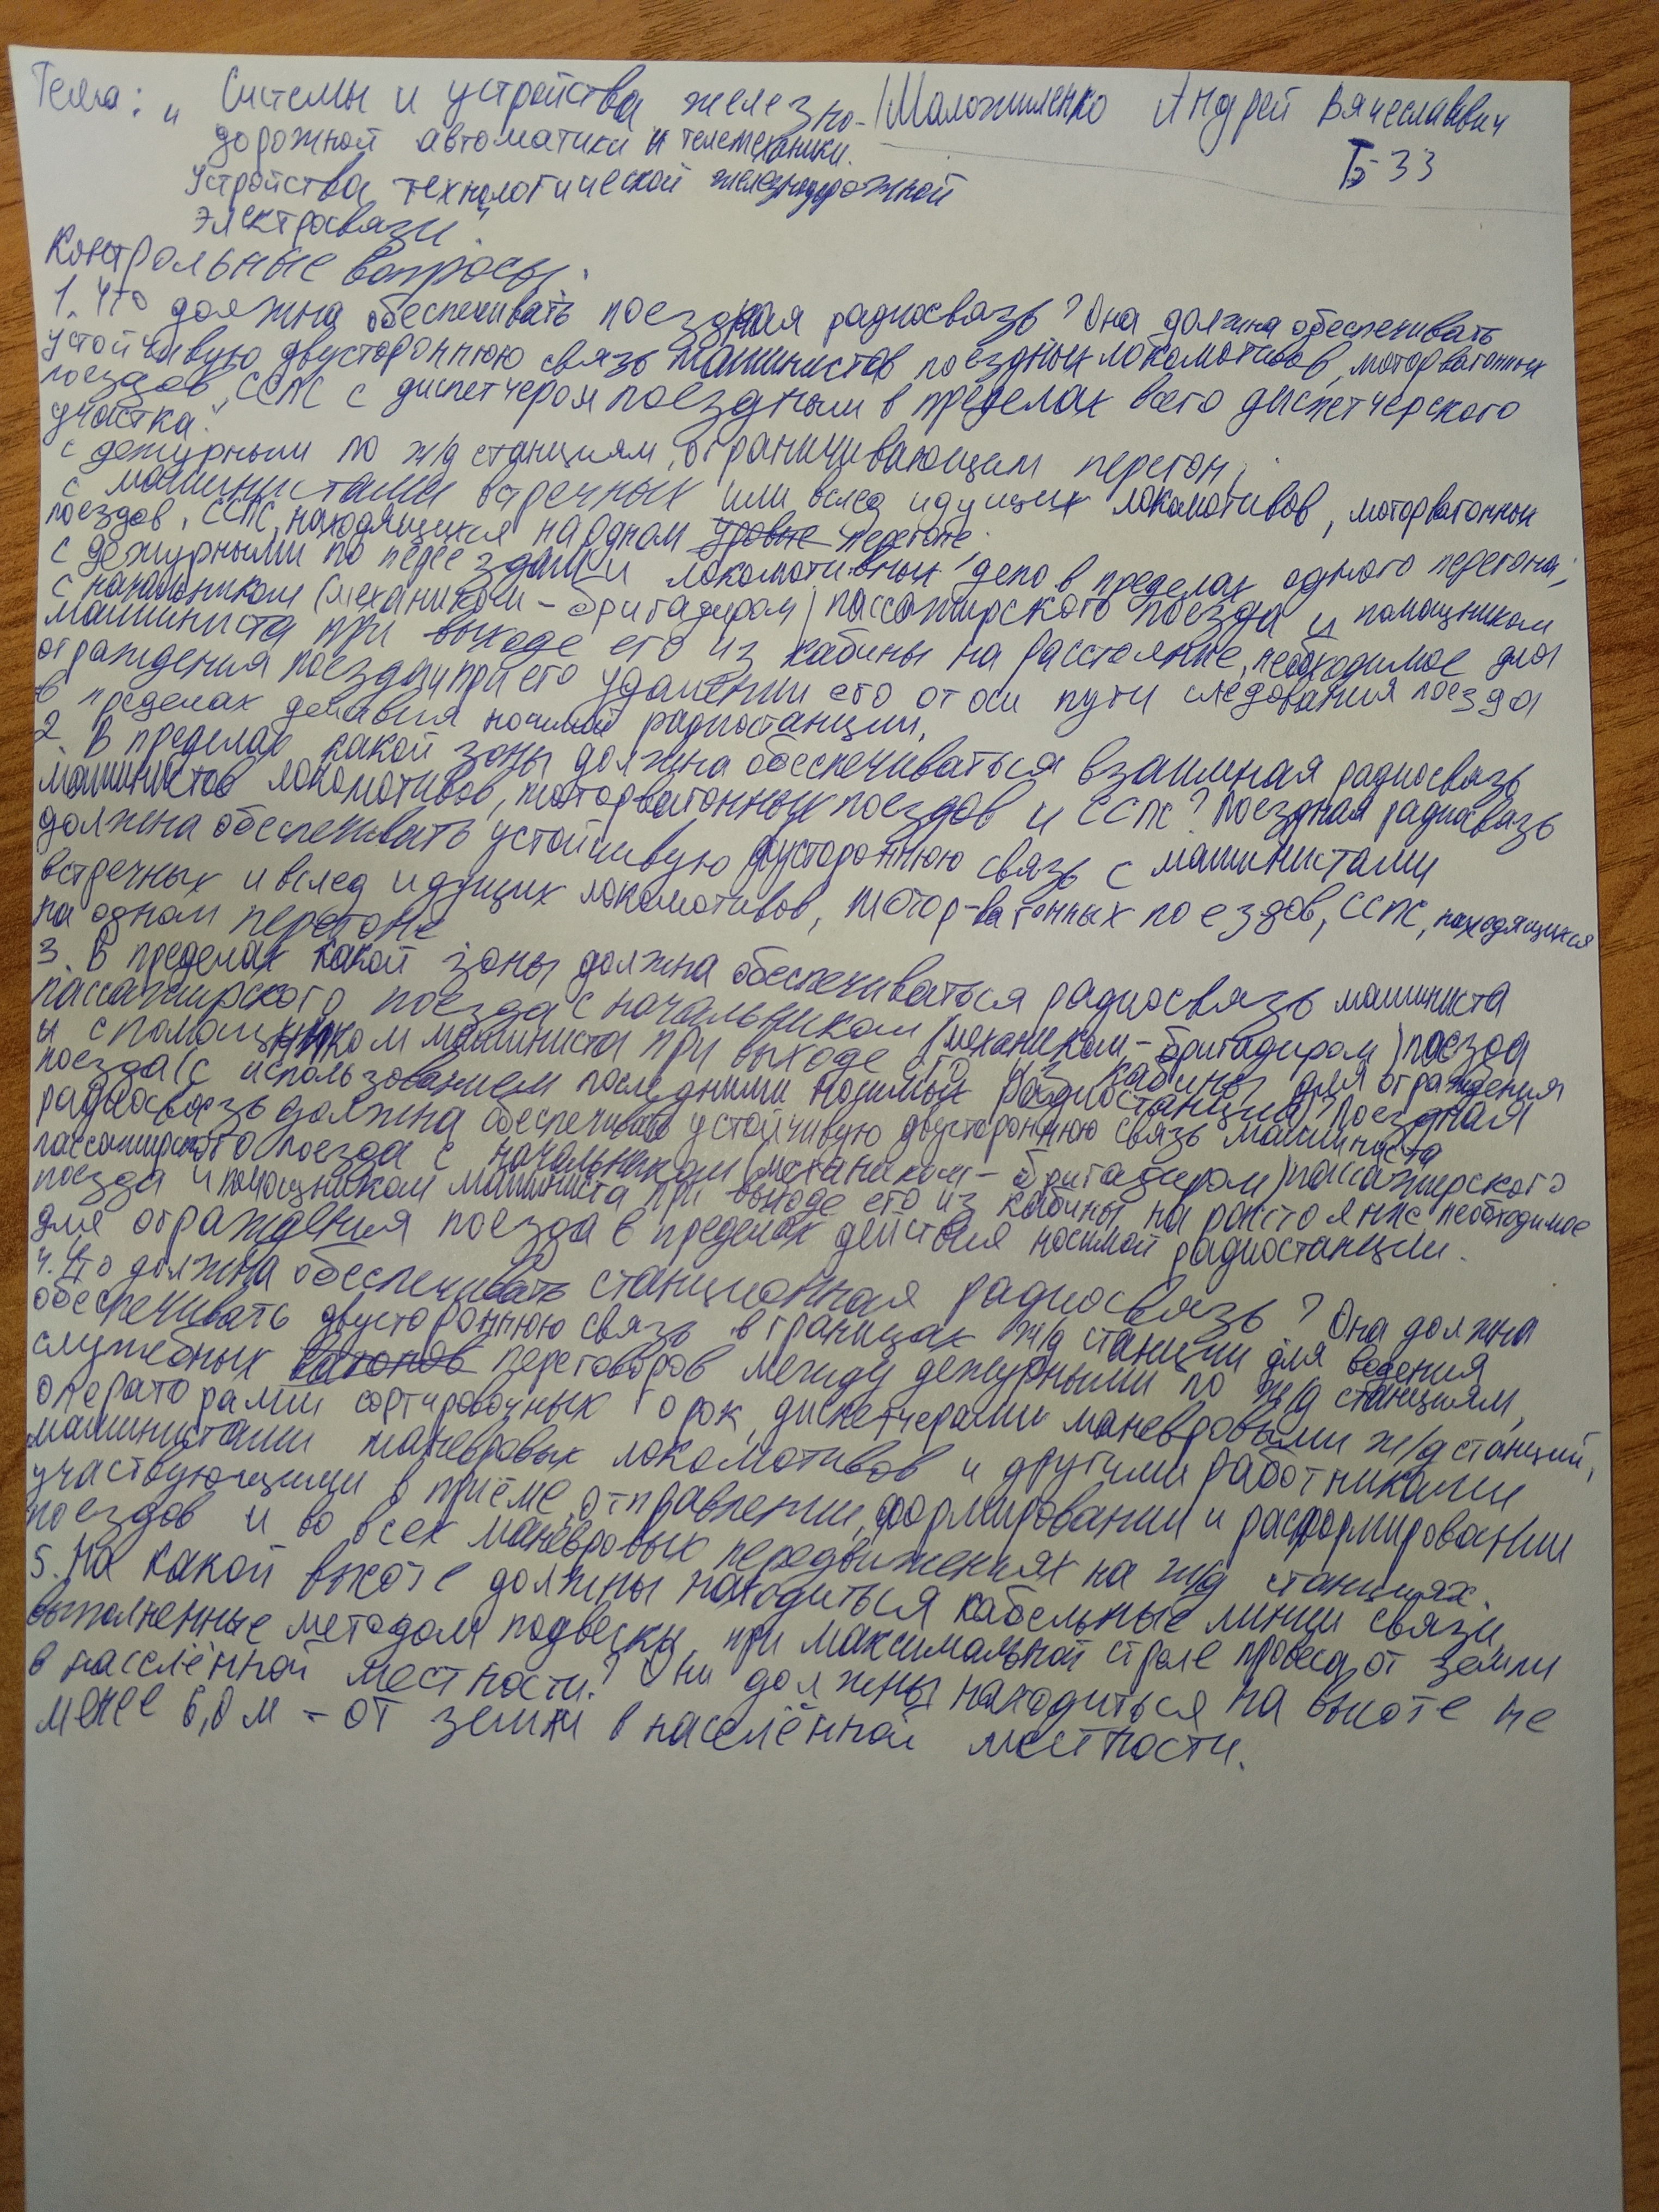 Тема: „ Системы и устройства железно-
дорожной автоматики и телемеханики.
Устройства технологической железнодорожной
электросвязи".
Андрей Вячеславович
Б-33
Контрольные вопросы.
1. Что должна обеспечивать поездная радиосвязь? Она должна обеспечивать
устойчивую двустороннюю связь машинистов поездных локомотивов, моторвагонных
поездов, ССПС с диспетчером поездным в пределах всего диспетчерского
участка.
с дежурными по ж/д станциям, ограничивающим перегон,
с машинистами встречных или вслед идущих локомотивов, моторвагонных
поездов, ССПС, находящихся на одном уровне перегоне.
с дежурными по переездам и локомотивных депо в пределах одного перегона;
с начальником (механиком-бригадиром) пассажирского поезда и помощником
машиниста при выходе его из кабины на расстояние, необходимое для
ограждения поезда и при его удалении его от оси пути следования поезда
в пределах действия носимой радиостанции.
2. В пределах какой зоны должна обеспечиваться взаимная радиосвязь
машинистов локомотивов, моторвагонных поездов и ССПС? Поездная радиосвязь
должна обеспечивать устойчивую двустороннюю связь с машинистами
встречных и вслед идущих локомотивов, мотор-вагонных поездов, ССПС, находящихся
на одном перегоне
3. В пределах какой зоны должна обеспечиваться радиосвязь машиниста
пассажирского поезда с начальником (механиком-бригадиром) поезда
и с помощником машиниста при выходе его из кабины для ограждения
поезда (с использованием последними носимых радиостанций)? Поездная
радиосвязь должна обеспечивать устойчивую двустороннюю связь машиниста
пассажирского поезда с начальником (механиком-бригадиром) пассажирского
поезда и помощником машиниста при выходе его из кабины на расстояние необходимое
для ограждения поезда в пределах действия носимой радиостанции.
4. Что должна обеспечивать станционная радиосвязь? Она должна
обеспечивать двустороннюю связь в границах ж/д станции для ведения
служебных вагонов переговоров между дежурными по ж/д станциям,
операторами сортировочных горок, диспетчерами маневровыми ж/д станций,
машинистами маневровых локомотивов и другими работниками
участвующими в приёме, отправлении, формировании и расформировании
поездов и во всех маневровых передвижениях на ж/д станциях.
5. На какой высоте должны находиться кабельные линии связи,
выполненные методом подвески, при максимальной стреле провеса от земли
в населённой местности? Они должны находиться на высоте не
менее 6,0 м - от земли в населённой местности.